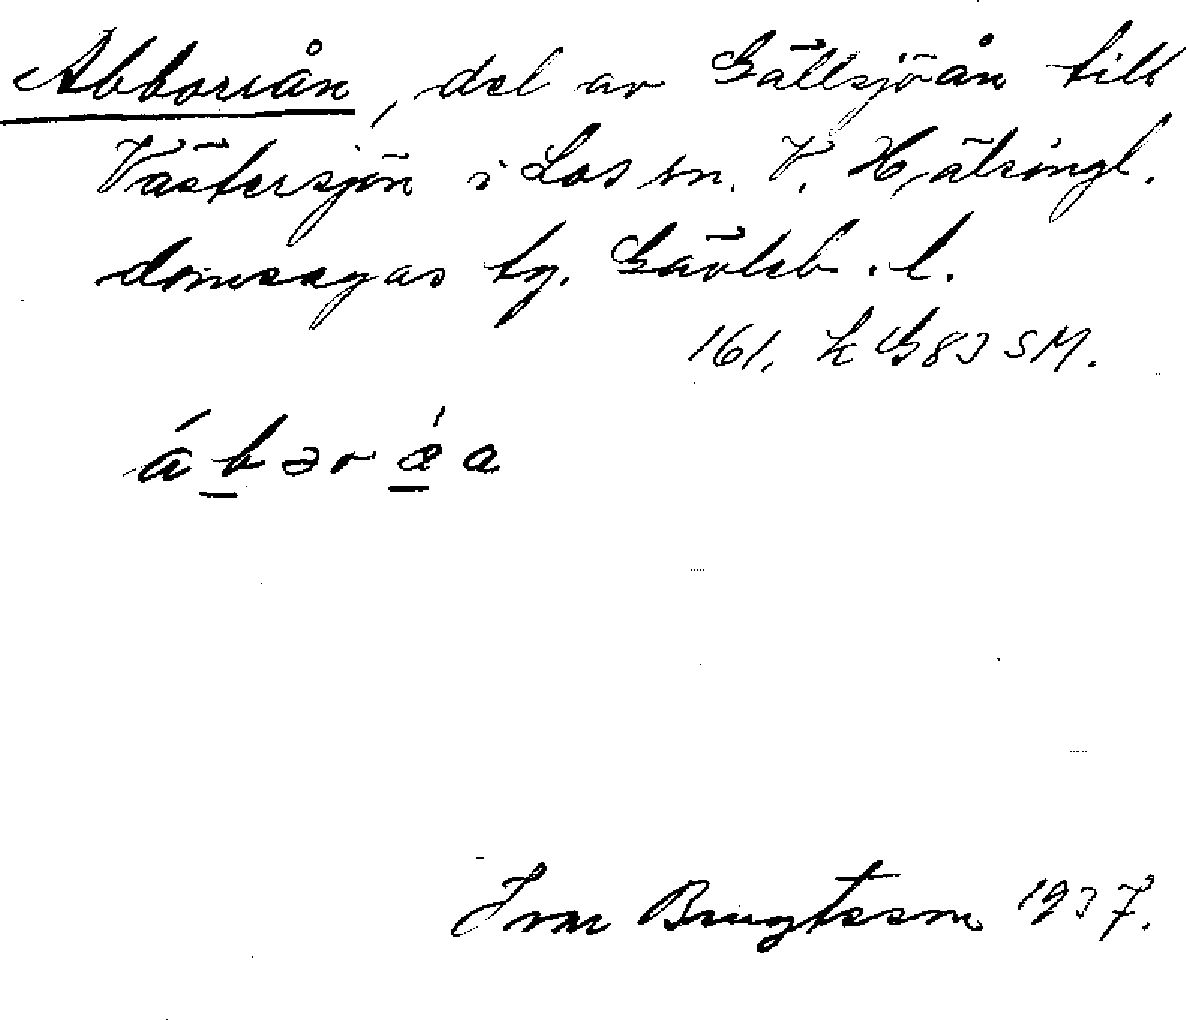 Abborrån, del av Gällsjöån till
Västersjön i Los sn. V. Hälsingl.
domsagas tg. Gävleb. l.
161. k G83 SM.
á b ə r ǽ a
Ivar Bengtsson 1937.